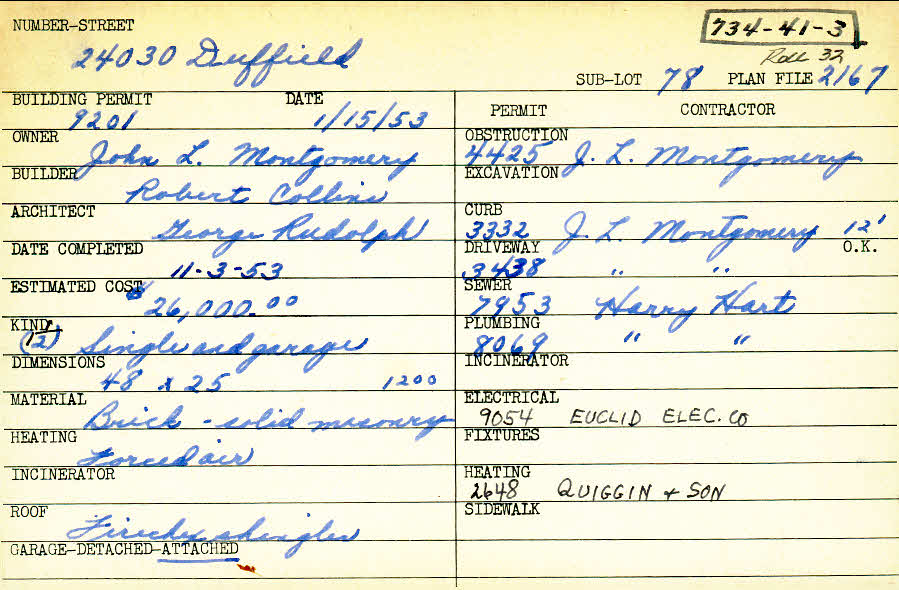 NUMBER-STREET
734-41-3
24030 Duffield
Roll 32
SUB-LOT 78 PLAN FILE 2167
BUILDING PERMIT DATE
9201 1/15/53
OWNER
John L. Montgomery
BUILDER
Robert Collins
ARCHITECT
George Rudolph
DATE COMPLETED
11-3-53
ESTIMATED COST
$26,000.00
KIND
(12) Single and garage
DIMENSIONS
48 x 25 1200
MATERIAL
Brick - solid masonry
HEATING
Forced air
INCINERATOR
ROOF
Firedex shingles
GARAGE-DETACHED-ATTACHED
PERMIT CONTRACTOR
OBSTRUCTION
4425 J. L. Montgomery
EXCAVATION
CURB
3332 J. L. Montgomery 12'
DRIVEWAY O.K.
3438 " "
SEWER
7953 Harry Hart
PLUMBING
8069 " "
INCINERATOR
ELECTRICAL
9054 EUCLID ELEC. CO
FIXTURES
HEATING
2648 QUIGGIN + SON
SIDEWALK